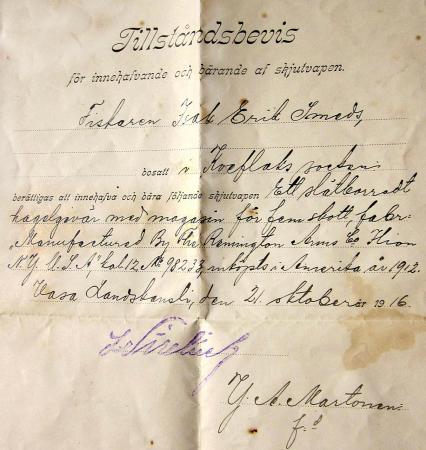 Tillståndsbevis
för innehafvande och bärande af skjutvapen.
Fiskaren Isak Erik Smeds,
bosatt i Koeflaks socken
berättigas att innehafva och bära följande skjutvapen Ett slätborradt
hagelgevär med magasin för fem skott, fabr.
"Manufactured By The Remington Arms Co Ilion
N.Y. U.S.A" kal. 12 No 98233, inköpts i Amerika år 1912.
Vasa Landskansli, den 21 oktober år 1916.
Y. A. Martonen